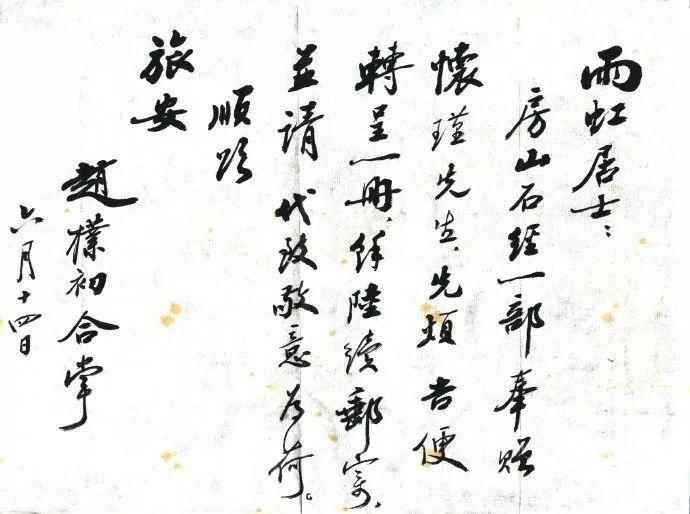 雨虹居士：
房山石經一部奉贈
懷瑾先生、先煩吉便
轉呈一冊，餘陸續郵寄，
並請代致敬意為荷。
順頌
旅安
趙樸初合掌
六月十四日